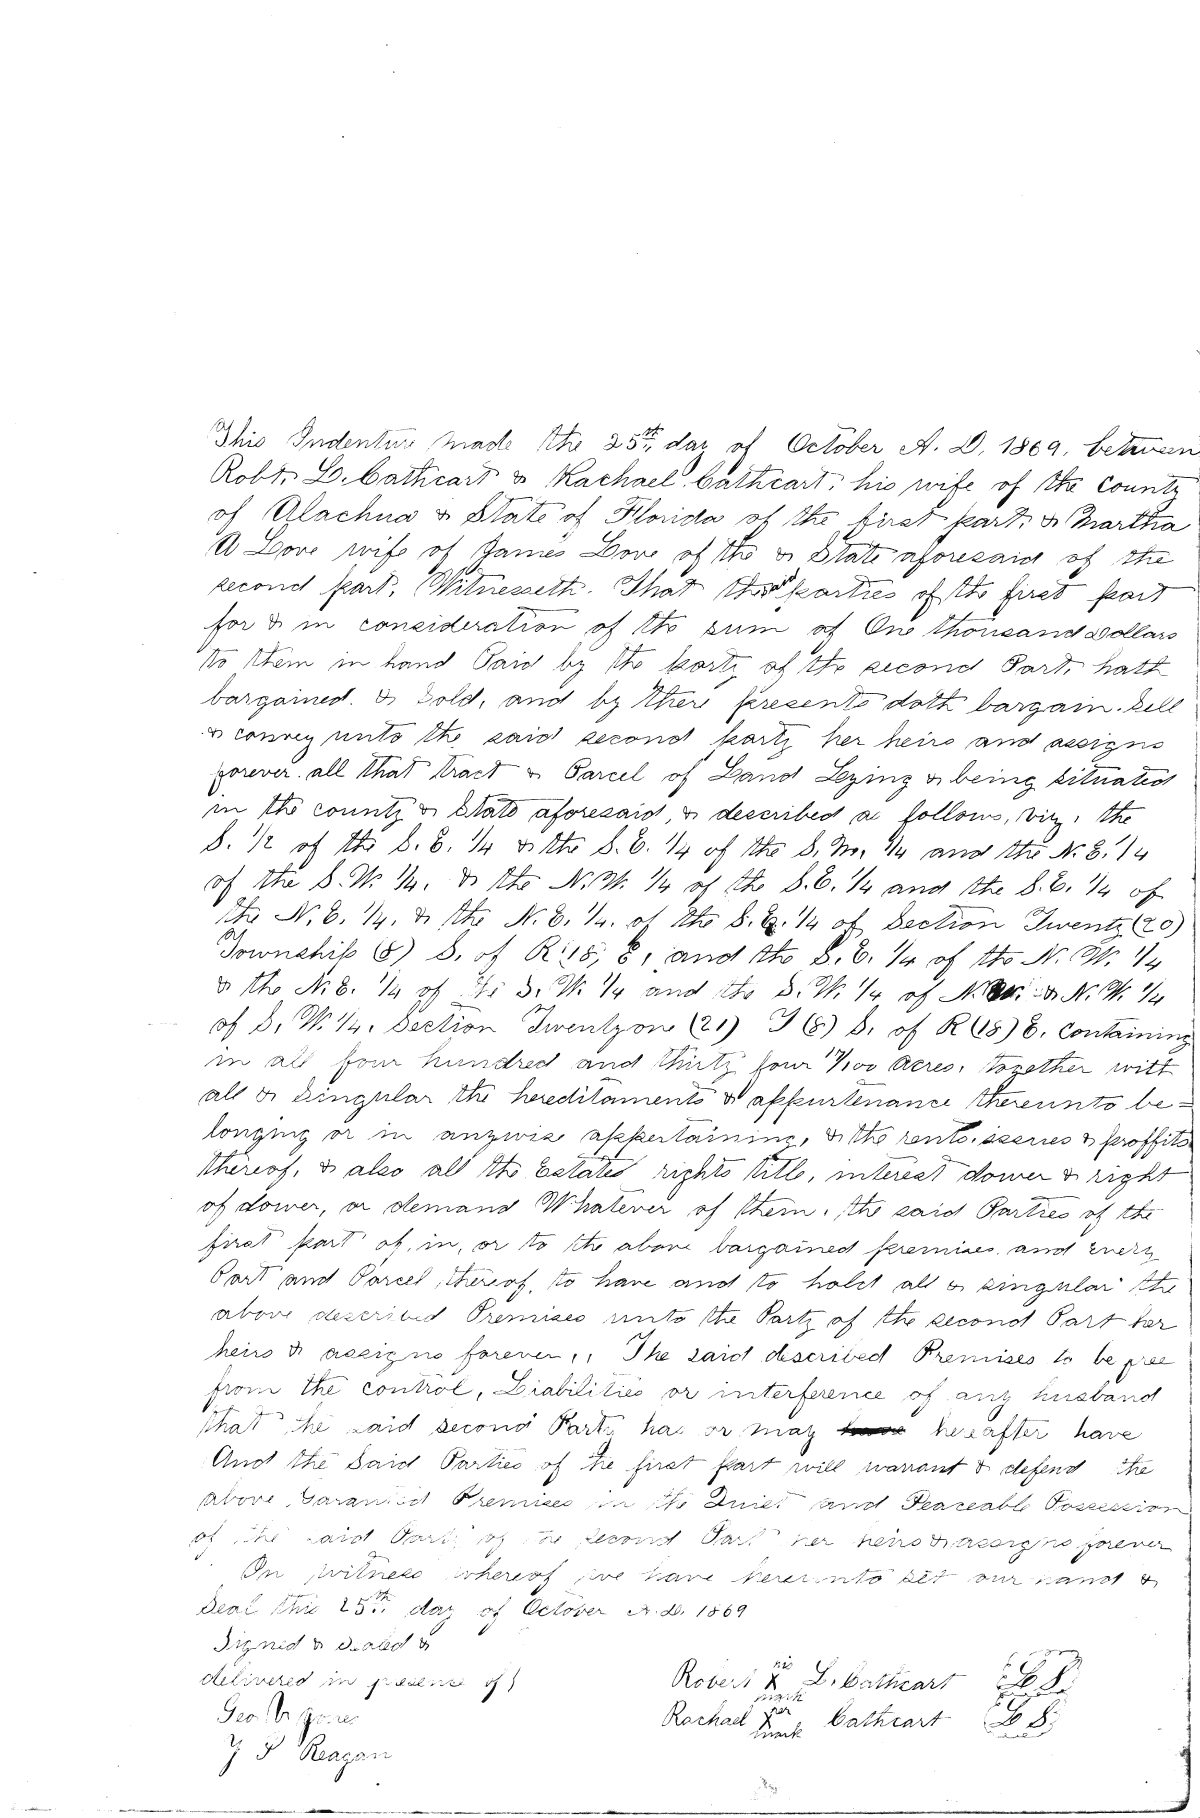 This Indenture made the 25th. day of October A. D. 1869, between
Robt. L. Cathcart & Rachael Cathcart, his wife of the county
of Alachua & State of Florida of the first part, & Martha
A Love wife of James Love of the & State aforesaid of the
second part, Witnesseth. That the said parties of the first part
for & in consideration of the sum of One thousand Dollars
to them in hand Paid by the party of the second Part, hath
bargained. & Sold, and by there presents doth bargain. Sell
& convey unto the said second party her heirs and assigns
forever. all that tract & Parcel of Land Lying & being situated
in the county & State aforesaid, & described as follows, viz, the
S. 1/2 of the S. E. 1/4 & the S. E. 1/4 of the S. W. 1/4 and the N. E. 1/4
of the S. W. 1/4. & the N. W. 1/4 of the S. E. 1/4 and the S. E. 1/4 of
the N. E. 1/4. & the N. E. 1/4. of the S. E. 1/4 of Section Twenty (20)
Township (8) S. of R 18, E, and the S. E. 1/4 of the N. W. 1/4
& the N. E. 1/4 of the S. W. 1/4 and the S. W. 1/4 of N. W. & N. W. 1/4
of S. W. 1/4. Section Twentyone (21) T (8) S. of R (18) E. containing
in all four hundred and thirty four /100 acres, together with
all & Singular the hereditaments & appurtenance thereunto be=
longing or in anywise appertaining, & the rents. issues & proffits
thereof, & also all the Estates rights title, interest dower & right
of dower, or demand Whatever of them. the said Parties of the
first part of, in, or to the above bargained premises. and every
Part and Parcel thereof, to have and to hold all & singular the
above described Premises unto the Party of the second Part her
heirs & assigns forever,, The said described Premises to be free
from the control, Liabilities or interference of any husband
that the said second Party has or may hereafter have
And the Said Parties of the first part will warrant & defend the
above Garanteed Premises in the Quiet and Peaceable Possession
of the said Party of the second Part her heirs & assigns forever
In witness whereof we have hereunto set our hand &
Seal this 25th. day of October A. D. 1869
Signed & Sealed &
delivered in presence of }
Robert his X mark L. Cathcart L S
Geo. Jones
Rachael her X mark Cathcart L S
Reagan